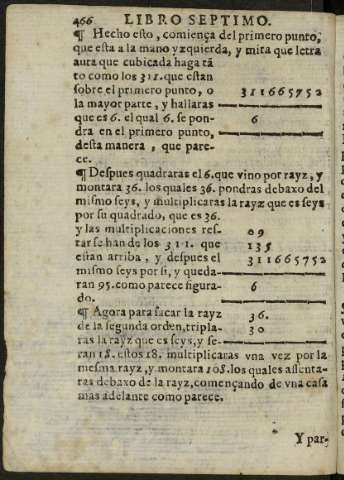 466 LIBRO SEPTIMO.
¶ Hecho esto, comiença del primero punto,
que esta a la mano yzquierda, y mira que letra
aura que cubicada haga tã
to como los 311. que estan
sobre el primero punto, o
la mayor parte, y hallaras
que es 6. el qual 6. se pon-
dra en el primero punto,
desta manera, que pare-
ce.
311665752
6
¶ Despues quadraras el 6. que vino por rayz, y
montara 36. los quales 36. pondras debaxo del
mismo seys, y multiplicaras la rayz que es seys
por su quadrado, que es 36.
y las multiplicaciones res-
tarse han de los 311. que
estan arriba, y despues el
mismo seys por si, y queda-
ran 95. como parece figura-
do.
09
135
311665752
6
¶ Agora para sacar la rayz
de la segunda orden, tripla-
ras la rayz que es seys, y se-
36.
30
ran 18. estos 18. multiplicaras vna vez por la
mesma rayz, y montara 108. los quales assenta-
ras debaxo de la rayz, començando de vna casa
mas adelante como parece.
Y par-